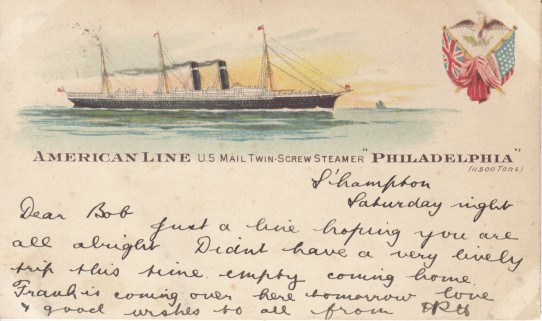 AMERICAN LINE U.S MAIL TWIN-SCREW STEAMER "PHILADELPHIA"
(11,500 Tons.)
S'hampton
Saturday night
Dear Bob Just a line hoping you are
all alright Didnt have a very lively
trip this time empty coming home.
Frank is coming over here tomorrow love
& good wishes to all from